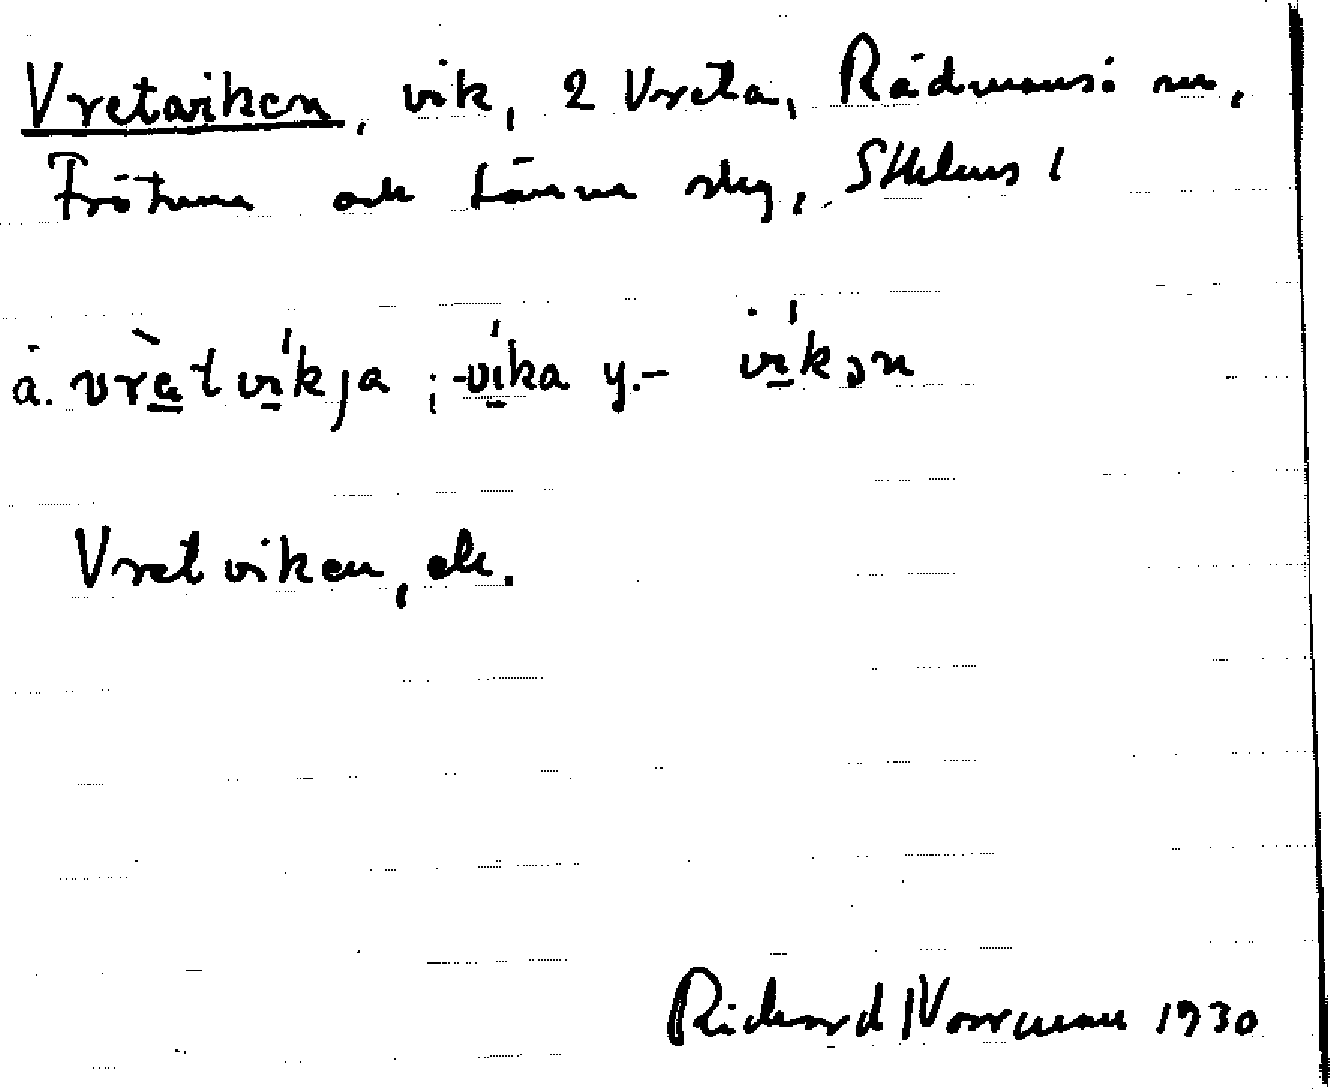 Vretaviken, vik, 2 Vreta, Rådmansö sn,
Frötuna och Länna skg, Sthlms l
ä. vrètvíkja; -víka y.- víkən
Vretviken, ek.
Richard Norrman 1930